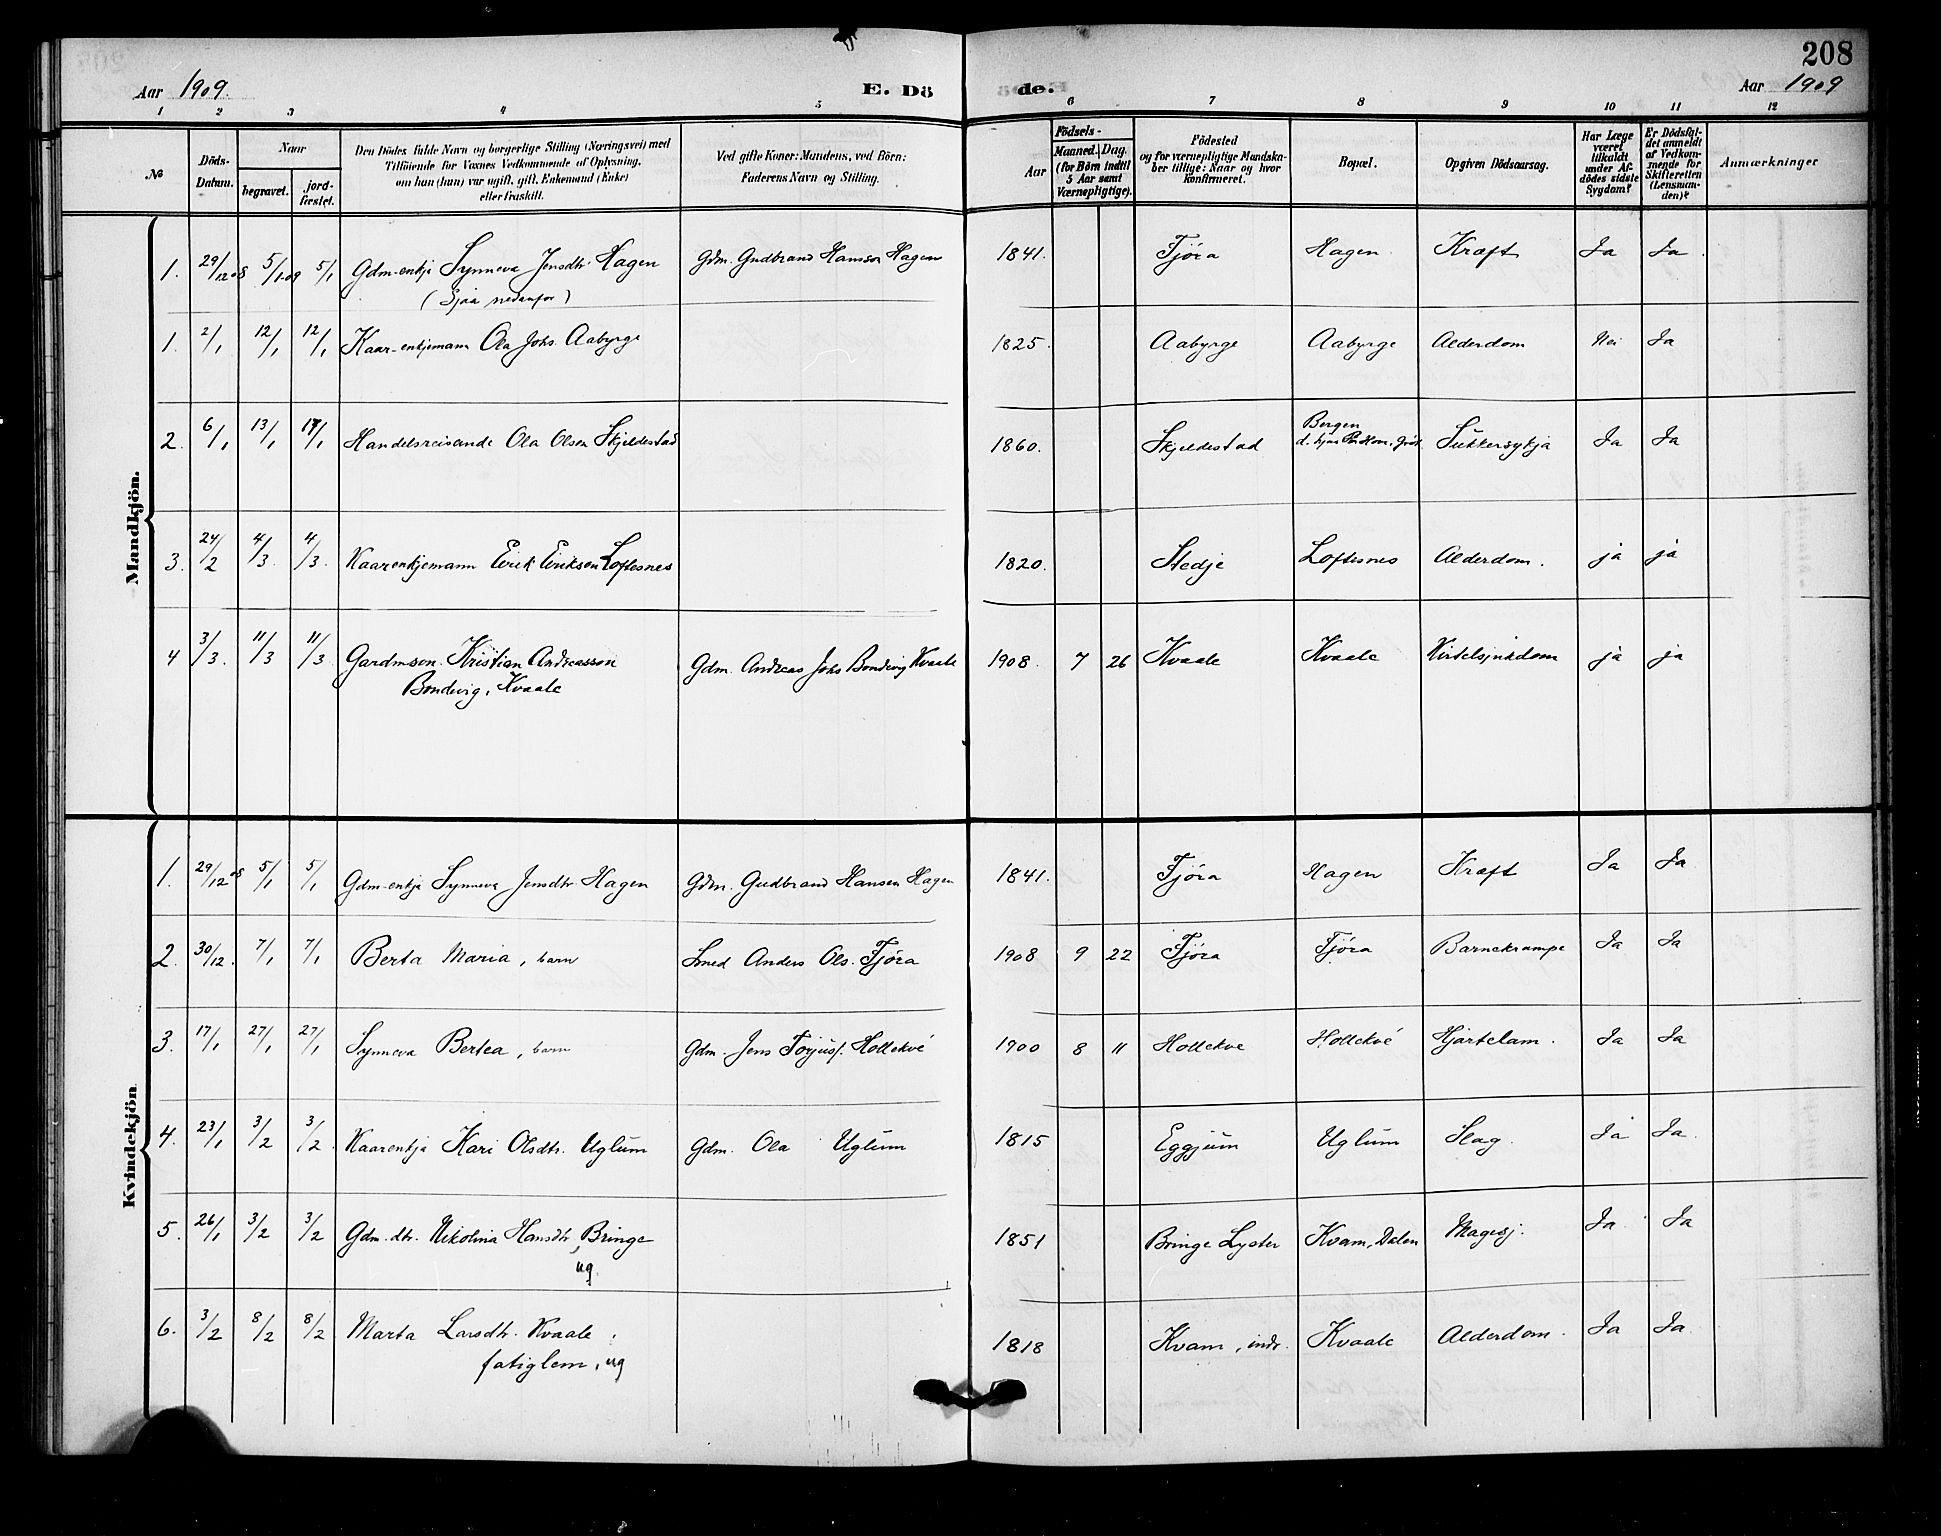 208
Aar 1909.
E. Dö de.
Aar 1909
1 2 3 4 5 6 7 8 9 10 11 12
№
Döds-Datum.
Naar
begravet.
jord-fæstet.
Den Dödes fulde Navn og borgerlige Stilling (Næringsvei) med
Tilföiende for Voxnes Vedkommende af Oplysning,
om han (hun) var ugift, gift, Enkemand (Enke)
eller fraskilt.
Ved gifte Koner: Mandens, ved Börn:
Faderens Navn og Stilling.
Födsels-
Aar
Maaned. Dag.
(for Börn indtil
5 Aar samt
Værnepligtige).
Födested
og for værnepligtige Mandska-
ber tillige: Naar og hvor
konfirmeret.
Bopæl.
Opgiven Dödsaarsag.
Har Læge
været
tilkaldt
under Af-
dödes sidste
Sygdom?
Er Dödsfal-
det anmeldt
af Vedkom-
mende for
Skifteretten
(Lensman-
den)?
Anmærkninger
Mandkjön.
1. 29/12 08 5/1 09 5/1 Gdm-enkja Synneva Jensdtr. Hagen Gdm. Gudbrand Hansson Hagen 1841. Tjöra Hagen Kræft Ja Ja.
(Sjaa nedanfor)
1. 2/1 12/1 12/1 Kaar-enkjemann Ola Johs. Aabyrge 1825. Aabyrge Aabyrge Alderdom Nei Ja
2. 6/1 13/1 14/1 Handelsreisande Ola Olsen Skjeldestad 1860. Skjeldestad Bergen Sukkersykja Ja Ja
3. 24/2 4/3 4/3. Kaarenkjemann Eirik Eirikson Loftesnes 1820. Stedje Loftesnes Alderdom. ja ja
4 3/3. 11/3 11/3 Gardmson. Kristian Andreasson Gdm. Andreas Johs Bondevig Kvaale 1908. 7 26 Kvaale Kvaale Kirtelsjukdom ja ja
Bondevig, Kvaale
Kvindekjön
1. 29/12 08 5/1 5/1 Gdm-enkja Synneva Jensdtr. Hagen Gdm. Gudbrand Hansen Hagen 1841. Tjöra Hagen Kræft Ja Ja
2. 30/12. 7/1 7/1 Berta Maria, barn Smed Anders Ols. Tjöra 1908 9 22 Tjöra Tjöra Barnekrampe Ja Ja
3. 17/1 27/1 27/1 Synneva Bertea, barn Gdm. Jens Torjusf. Hollekvé 1900 8 11 Hollekve Hollekvé Hjartelam. Ja Ja
4. 23/1 3/2 3/2. Kaarenkja Kari Olsdtr. Uglum Gdm. Ola Uglum 1815 Eggjum Uglum Slag. Ja Ja.
5. 26/1 3/2 3/2 Gdm.dtr. Nikolina Hansdtr, Bringe 1851 Bringe Lyster Kvam, Dalen Magesj. Ja. Ja
ug.
6. 3/2 8/2 8/2 Marta Larsdtr. Kvaale, 1818 Kvam, indr. Kvaale Alderdom. Ja Ja.
fatiglem, ug